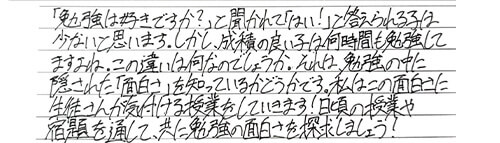 「勉強は好きですか?」と聞かれて「はい!」と答えられる子は
少ないと思います。しかし、成績の良い子は何時間も勉強して
ますよね。この違いは何なのでしょうか。それは、勉強の中に
隠された「面白さ」を知っているかどうかです。私はこの面白さに
生徒さんが気付ける授業をしていきます!日頃の授業や
宿題を通して、共に勉強の面白さを探求しましょう!